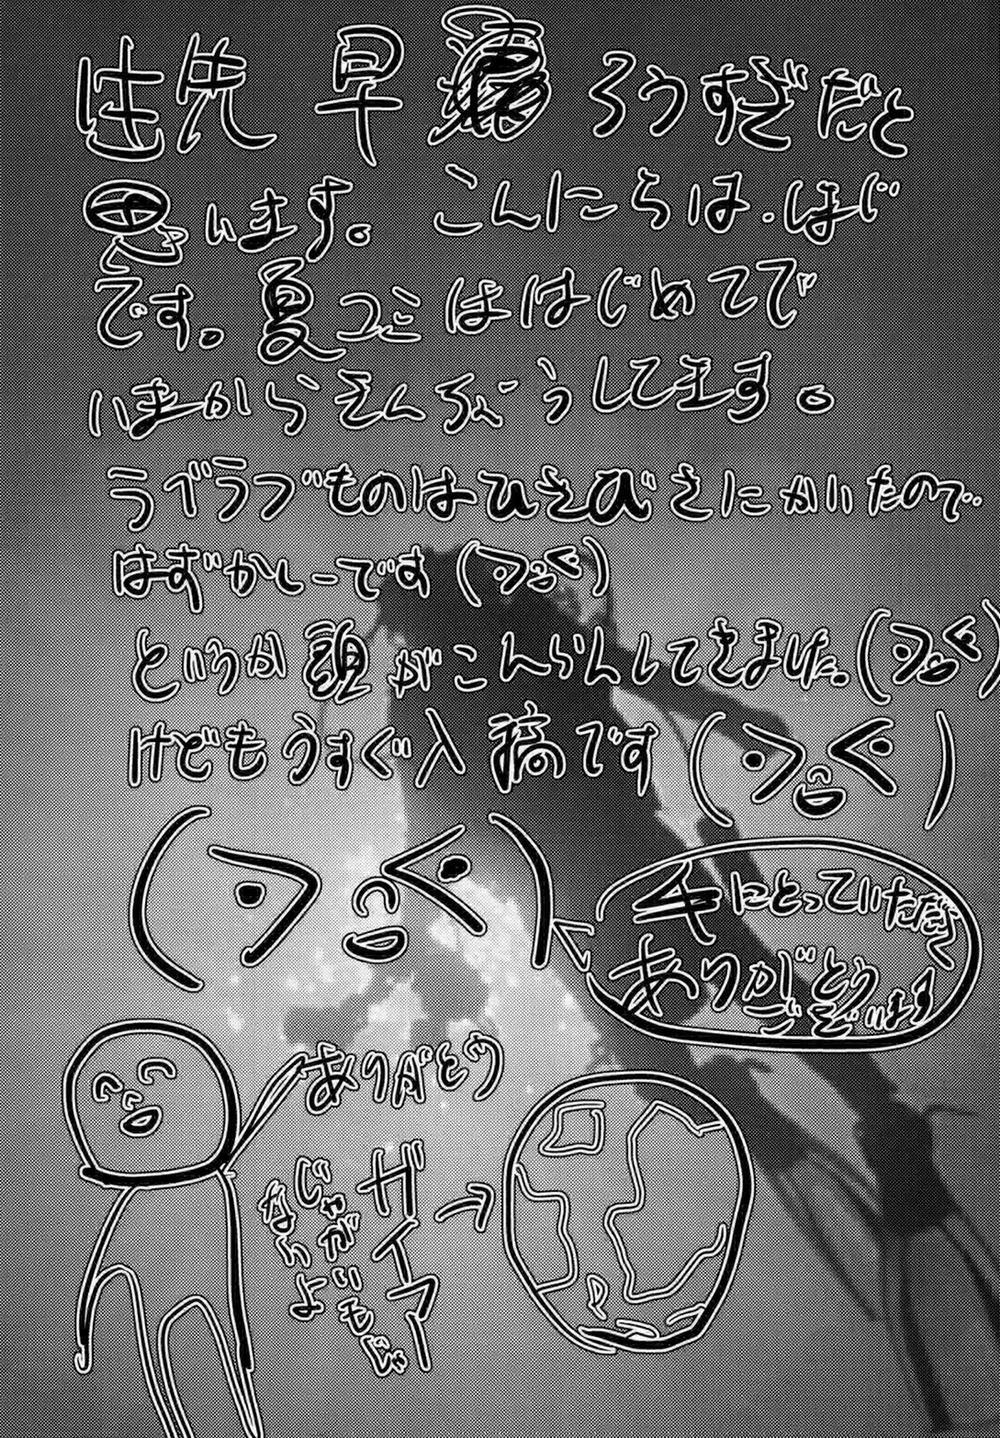 先 早 ろうすぎだと
思います。こんにちは.ほじ
です。夏コミははじめてで
いまからぞんぶうしてます。
ラブラブものはひさびさにかいたので..
はずかしーです(フ○く)
というか頭がこんらんしてきました。(フ○く)
けどもうすぐ入稿です
手にとっていただき
ありがとう
ございます
ありがとう
ガイアー→
じゃがいもじゃ
ないよ